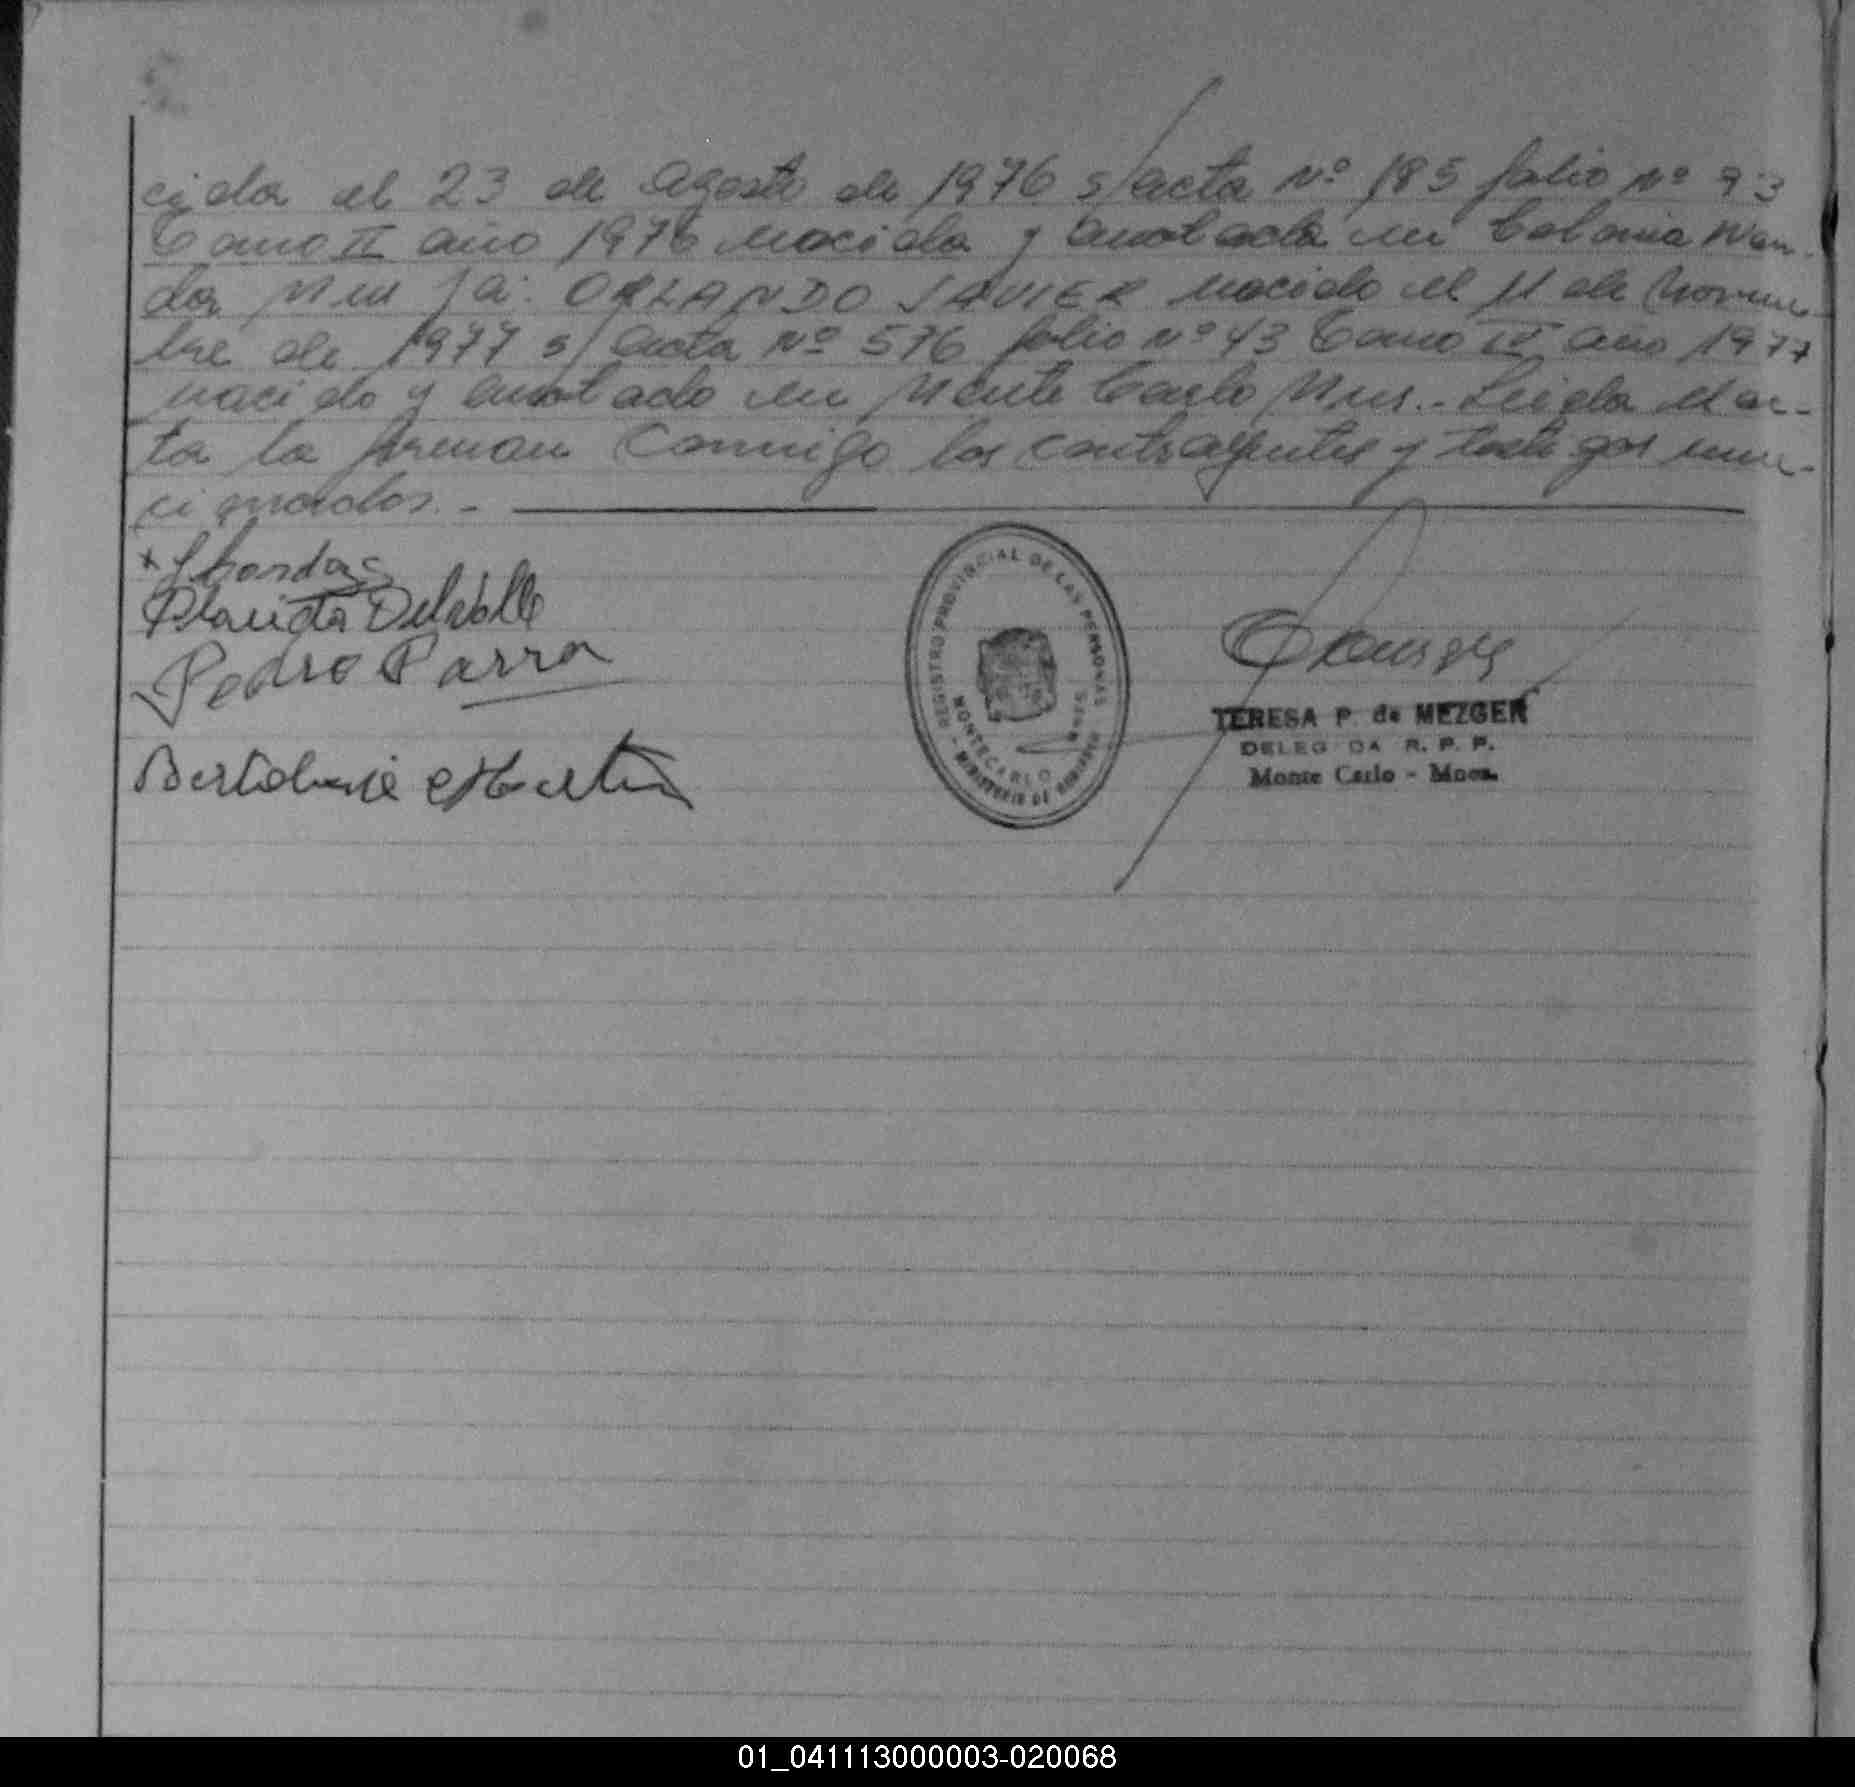 cida el 23 de agosto de 1976 s/acta Nº 185 folio Nº 93
Tomo II año 1976 nacida y anotada en Colonia Wan-
da Mnes ORLANDO JAVIER nacido el 11 de Noviem-
bre de 1977 s/acta Nº 576 folio Nº 43 Tomo IV año 1977
nacido y anotado en Monte Carlo Mnes.- Leida el ac-
ta la firman conmigo los contrayentes y testigos men-
cionados.-
Pedro Parra
REGISTRO PROVINCIAL DE LAS PERSONAS
MONTECARLO
MNES
MINISTERIO DE GOBIERNO
TERESA P. de MEZGER
DELEG DA R. P. P.
Monte Carlo - Mnes.
01_041113000003-020068